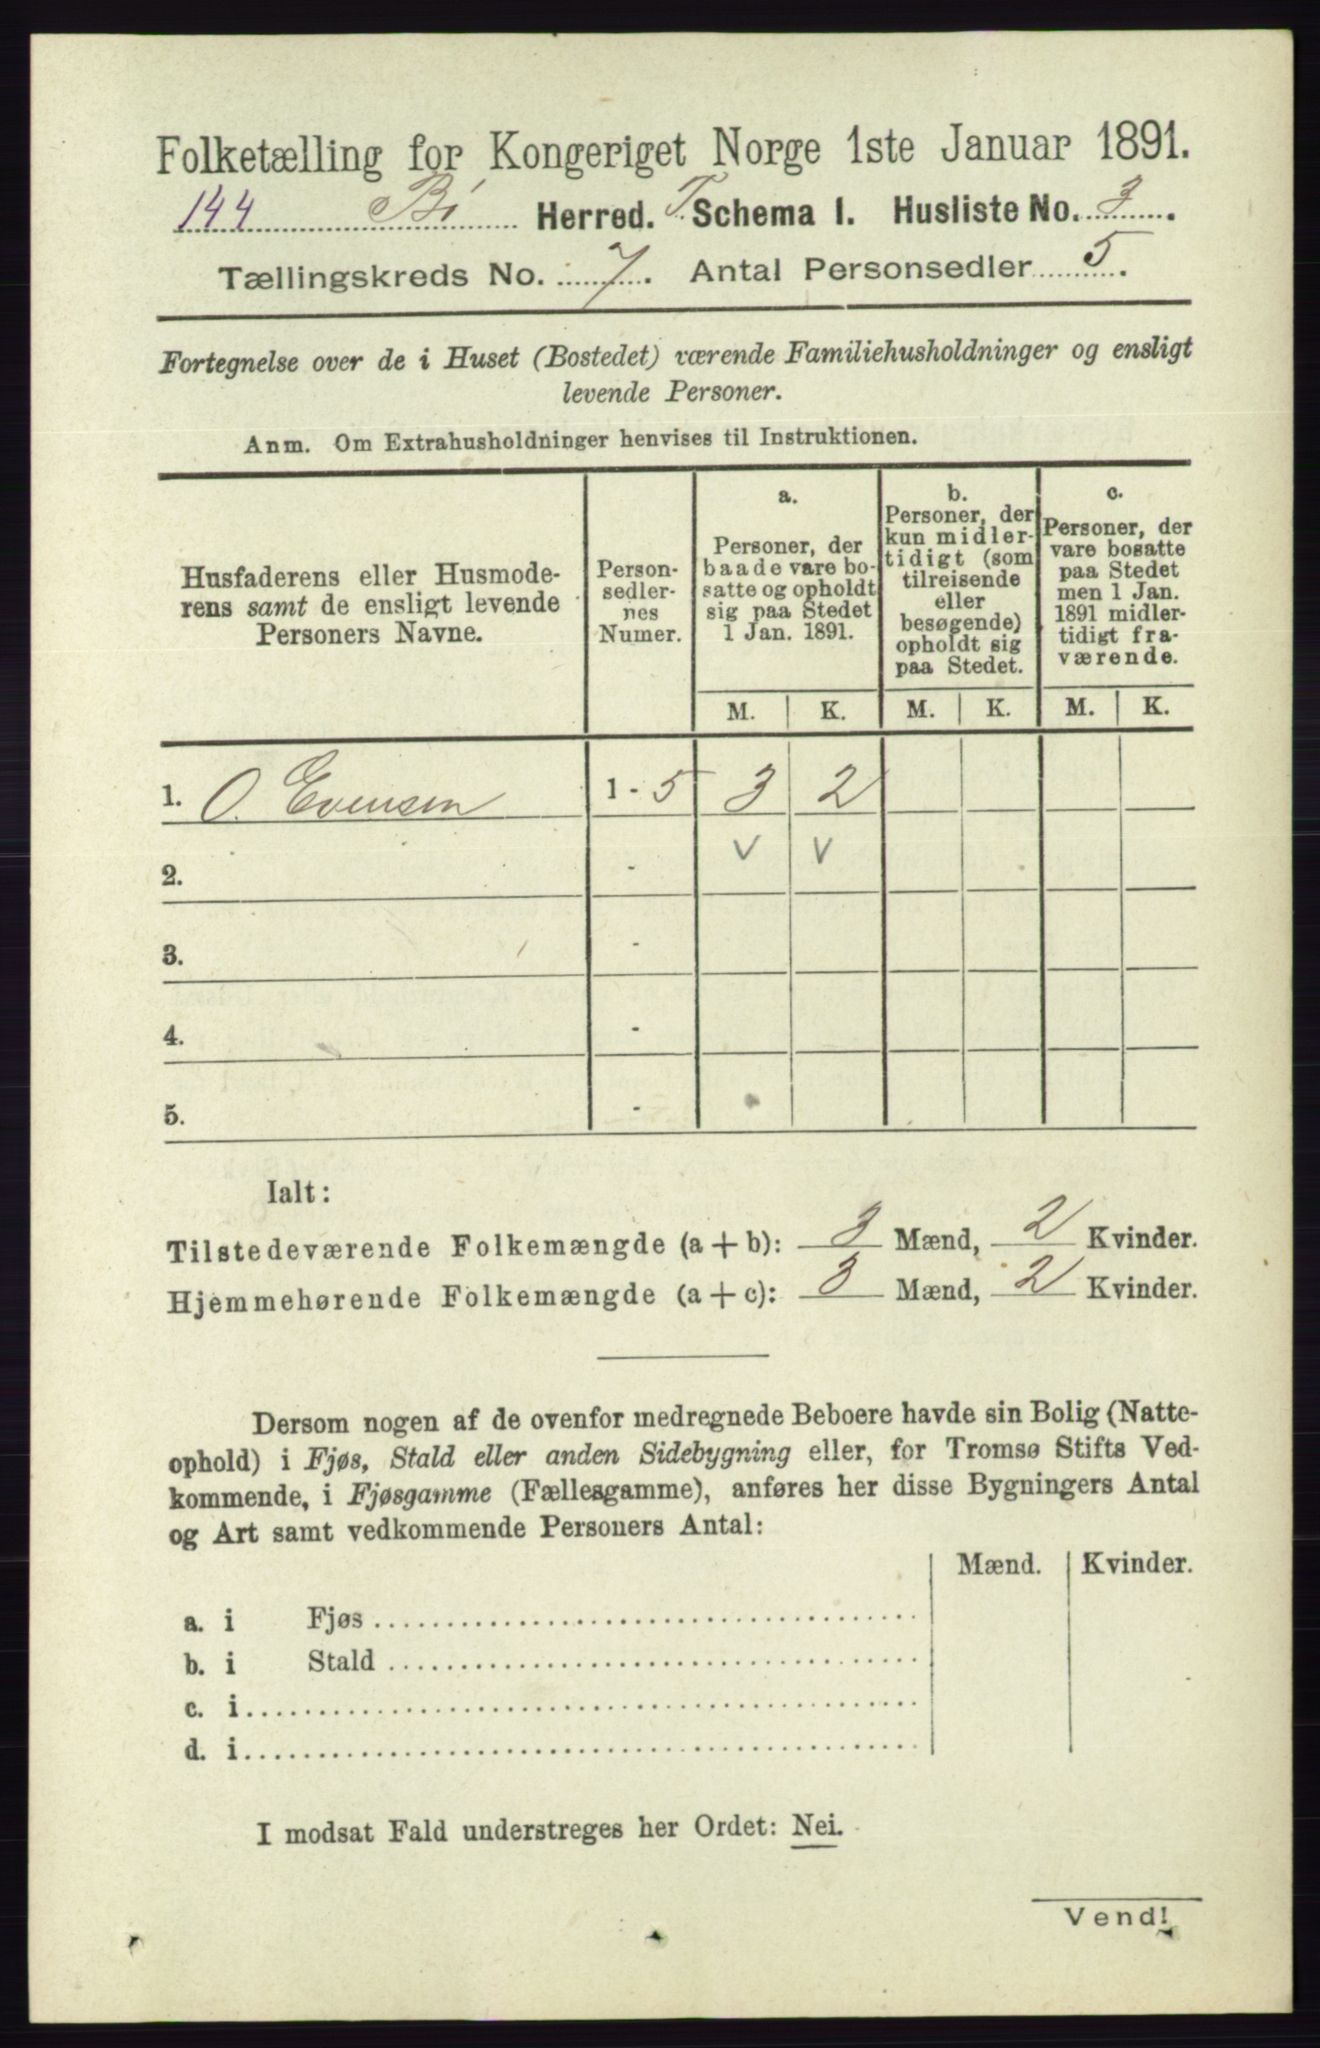 Folketælling for Kongeriget Norge 1ste Januar 1891.
144 Bö Herred. T. Schema 1. Husliste No. 3.
Tællingskreds No. 7. Antal Personsedler 5.
Fortegnelse over de i Huset (Bostedet) værende Familiehusholdninger og ensligt
levende Personer.
Anm. Om Extrahusholdninger henvises til Instruktionen.
Husfaderens eller Husmode-
rens samt de ensligt levende
Personers Navne.
Person-
sedler-
nes
Numer.
a.
Personer, der
baade vare bo-
satte og opholdt
sig paa Stedet
1 Jan. 1891.
b.
Personer, der
kun midler-
tidigt (som
tilreisende
eller
besøgende)
opholdt sig
paa Stedet.
c.
Personer, der
vare bosatte
paa Stedet
men 1 Jan.
1891 midler-
tidigt fra-
værende.
M. K. M. K. M. K.
1. O. Evensen 1 - 5 3 2
2. - v v
3. -
4. -
5. -
Ialt:
Tilstedeværende Folkemængde (a + b): 3 Mænd, 2 Kvinder.
Hjemmehørende Folkemængde (a + c): 3 Mænd, 2 Kvinder.
Dersom nogen af de ovenfor medregnede Beboere havde sin Bolig (Natte-
ophold) i Fjøs, Stald eller anden Sidebygning eller, for Tromsø Stifts Ved-
kommende, i Fjøsgamme (Fællesgamme), anføres her disse Bygningers Antal
og Art samt vedkommende Personers Antal:
Mænd. Kvinder.
a. i Fjøs
b. i Stald
c. i
d. i
I modsat Fald understreges her Ordet: Nei.
Vend!